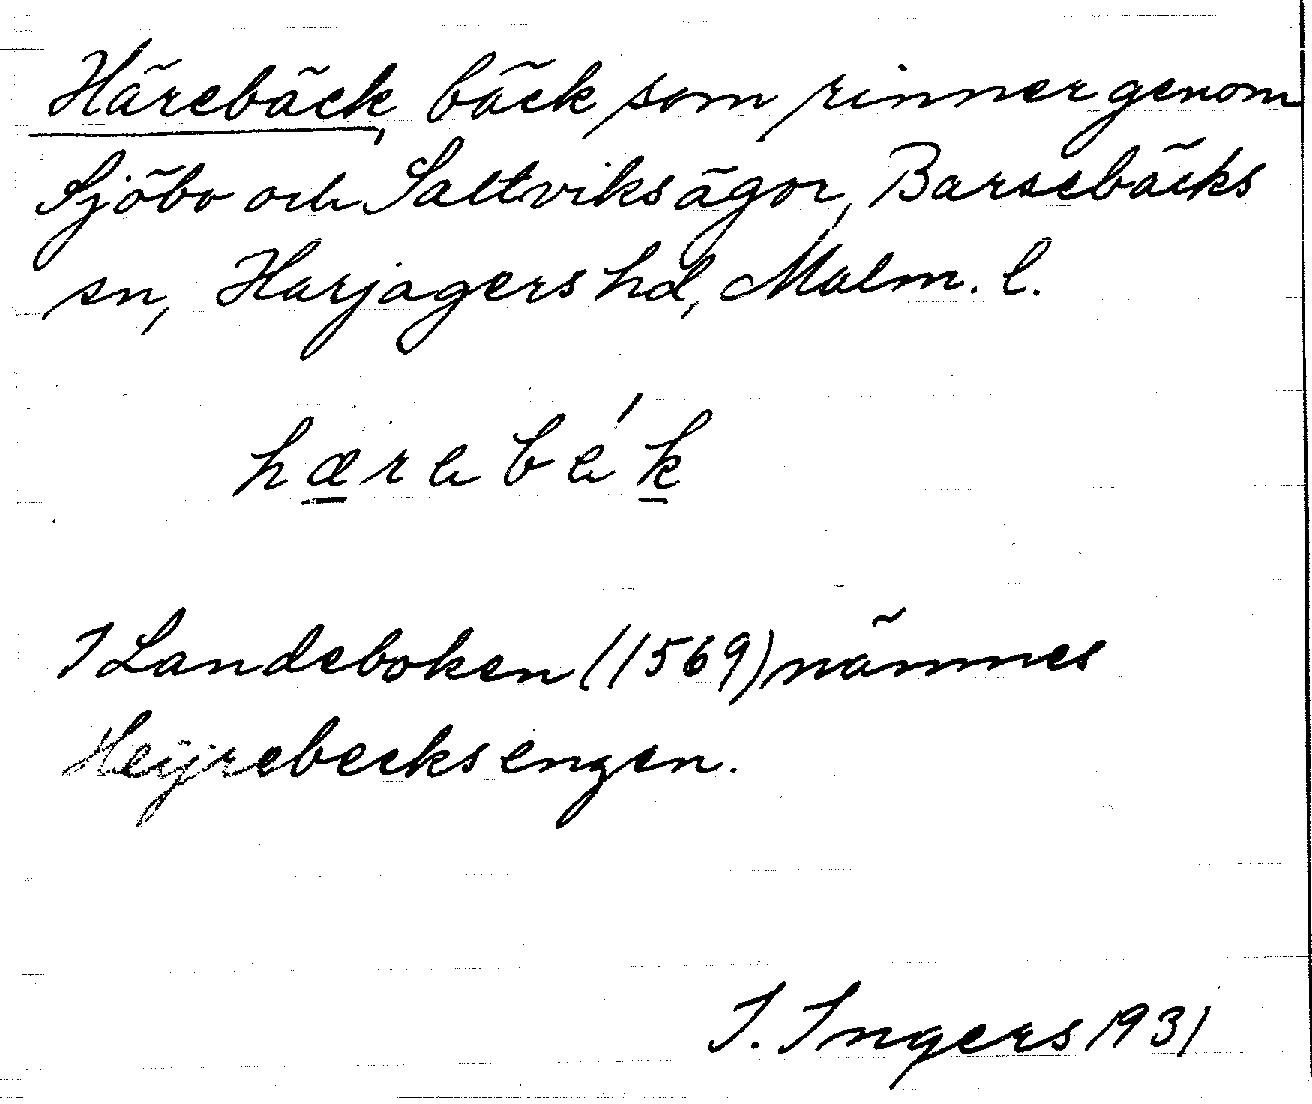 Härebäck, bäck som rinner genom
Sjöbo och Saltviks ägor, Barsebäcks
sn, Harjagers hd, Malm. l.
hærabák
I Landeboken (1569) nämnes
Heÿrebecks engen.
I. Ingers 1931